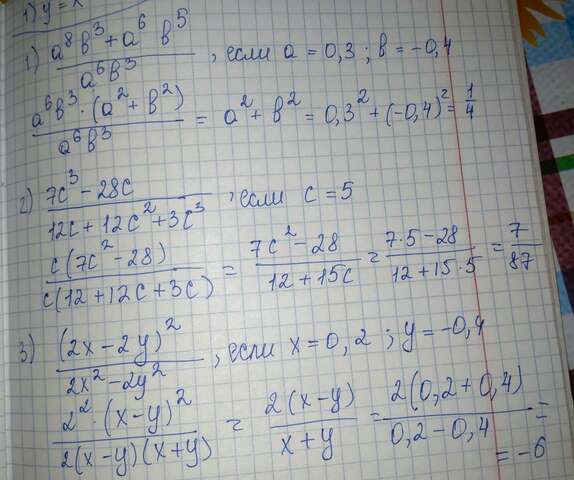 1) y = x
1) (a⁸b³ + a⁶ b⁵)/(a⁶b³), если a = 0,3 ; b = -0,4
(a⁶b³ · (a² + b²))/(a⁶b³) = a² + b² = 0,3² + (-0,4)² = 1/4
2) (7c³ - 28c)/(12c + 12c² + 3c³), если c = 5
(c(7c² - 28))/(c(12 + 12c + 3c)) = (7c² - 28)/(12 + 15c) = (7·5 - 28)/(12 + 15·5) = 7/87
3) (2x - 2y)²/(2x² - 2y²), если x = 0,2 ; y = -0,4
(2² · (x - y)²)/(2(x - y)(x + y)) = (2(x - y))/(x + y) = (2(0,2 + 0,4))/(0,2 - 0,4) =
= -6